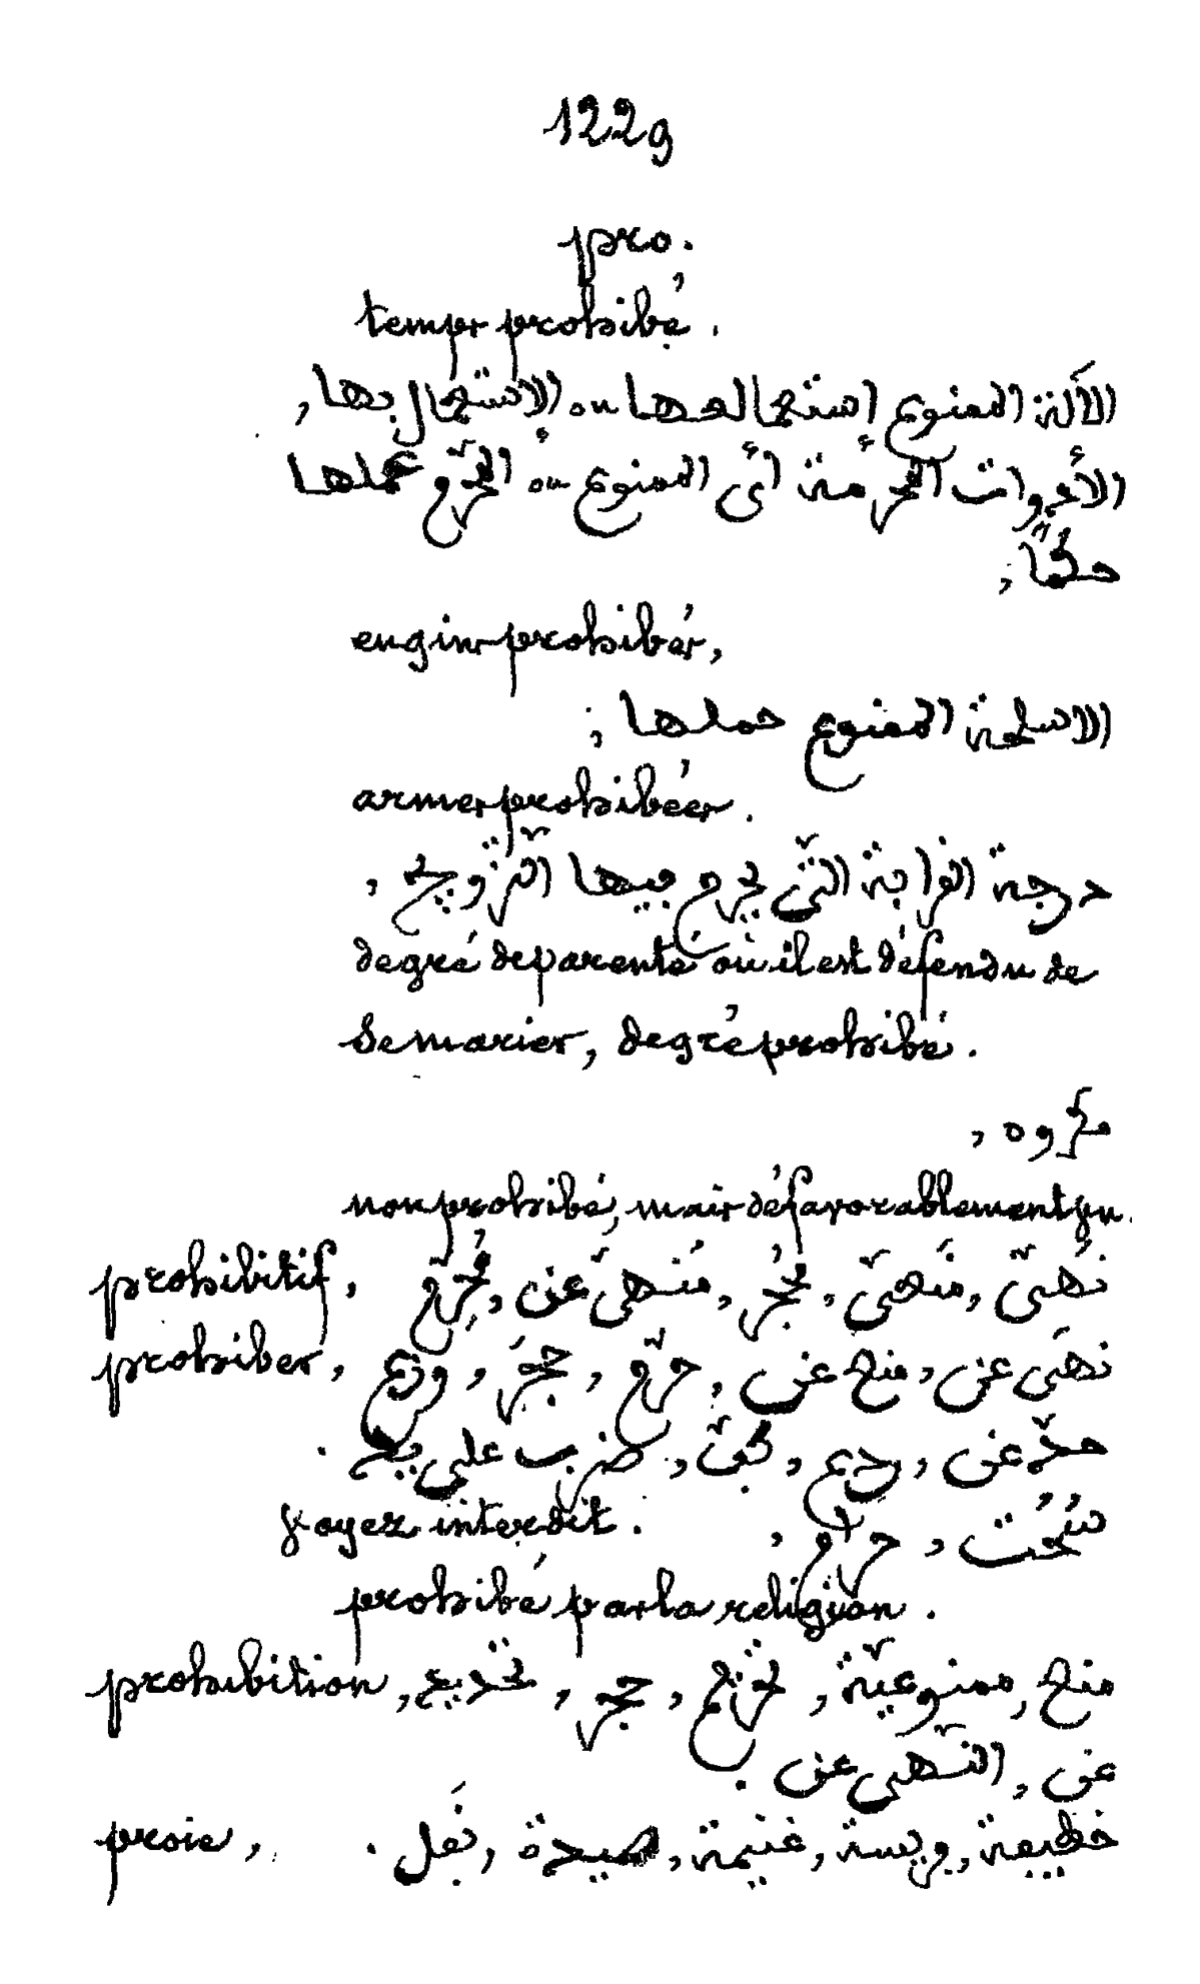 1229
pro.
temps prohibé.
الآلة الممنوع إستعمالها ou الإستعمال بها,
الأدوات المحرمة أى الممنوع ou المحرّم عملها
حكماً,
engins prohibés,
الاسلحة الممنوع حملها ;
armes prohibées.
درجة القرابة التّى يحرم فيها التّزويج ,
degré de parenté où il est défendu de
se marier, degré prohibé.
مكروه ,
non prohibé, mais défavorablement vu.
prohibitif, نَهىّ , مَنهىّ , مُحجر , مَنهىّ عن , مُحرّم
prohiber, نهَى عن , منع عن , حرّم , حجَر , وزع ,
حدّ عن , ردع , كفّ , ضرب على يد .
Voyez interdit. سُحُت , حرام ,
prohibé par la religion.
prohibition, منع , ممنوعيّة , تحريم , حجر , تحديد
عن , النّهى عن .
proie, خطيفة , فريسة , غنيمة , صيدة , نَفل .